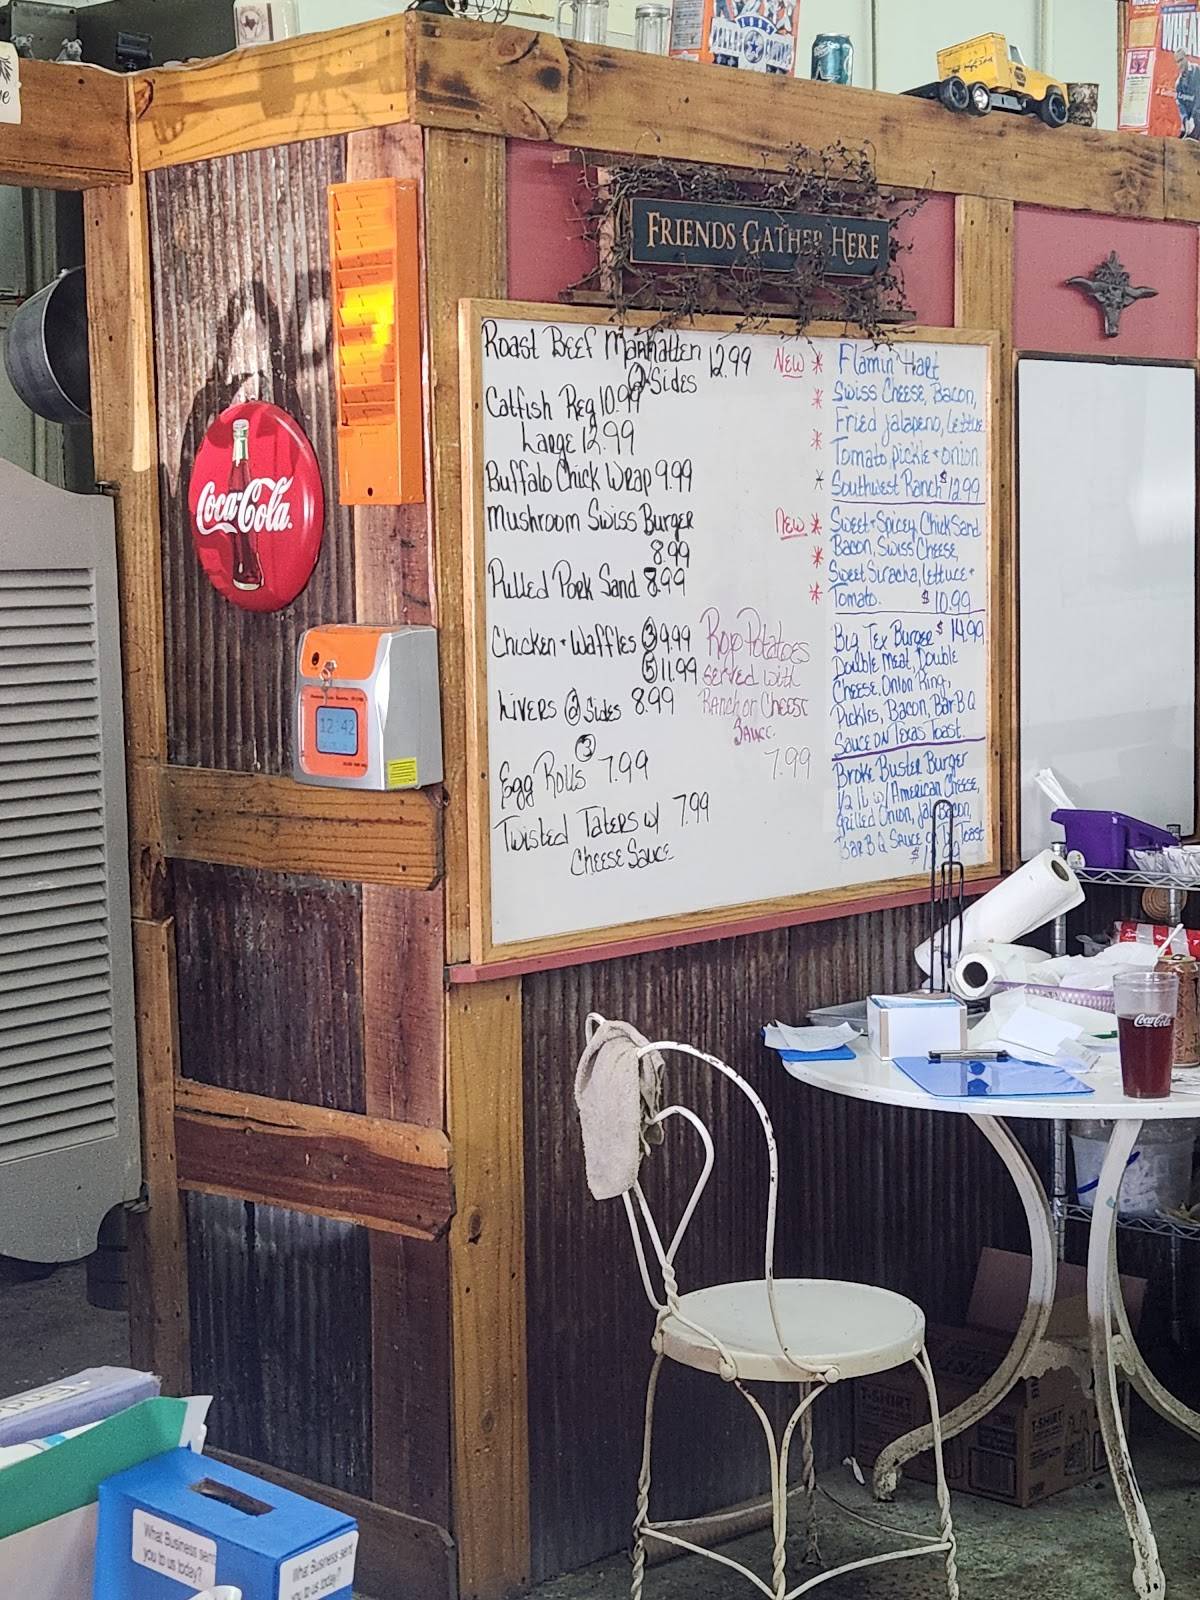 FRIENDS GATHER HERE
Coca-Cola
12:42
Roast Beef Manhatten 12.99
② Sides
Catfish Reg 10.99
Large 12.99
Buffalo Chick Wrap 9.99
Mushroom Swiss Burger
8.99
Pulled Pork Sand 8.99
Chicken + Waffles ③ 9.99
⑤ 11.99
Livers ② Sides 8.99
③
Egg Rolls 7.99
Twisted Taters w/ 7.99
Cheese Sauce
Served with
Ranch or Cheese
Sauce
7.99
New * Flamin' Hart
* Swiss Cheese, Bacon,
Fried Jalapeno, Lettuce
* Tomato, pickle + onion
* Southwest Ranch $12.99
New * Sweet + Spicey Chick Sand
* Bacon, Swiss Cheese,
Sweet Siracha, Lettuce +
* Tomato. $10.99
Big Tex Burger $14.99
Double Meat, Double
Cheese, Onion Ring,
Pickles, Bacon, Bar B Q
Sauce on Texas Toast.
Broke Buster Burger
1/2 lb w/ American Cheese,
grilled Onion, Bacon,
Bar B Q Sauce Toast
$
Coca-Cola
T-SHIRT
T-SHIRT
What Business sent
you to us today?
What Business sent
you to us today?